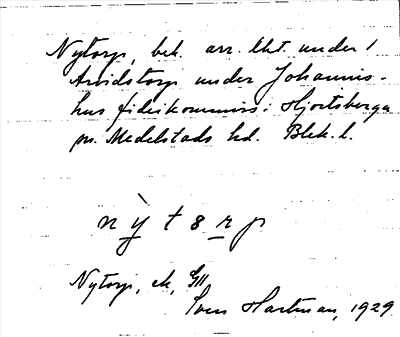 Nytorp, beb. arr. lht. under 1
Arvidstorp under Johannis-
hus fideikommiss i Hjortsberga
sn. Medelstads hd. Blek. l.
n ỳ t 8 r p
Nytorp, ek, GII
Sven Hartman, 1929